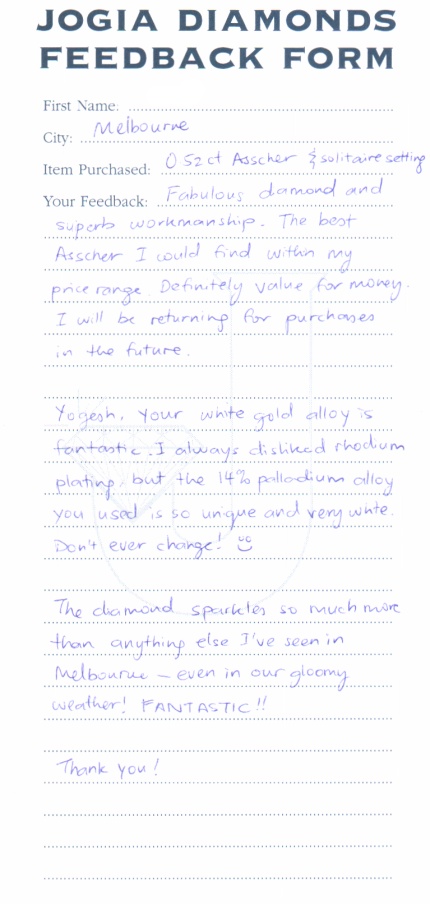 JOGIA DIAMONDS
FEEDBACK FORM
First Name:
City: Melbourne
Item Purchased: 0.52ct Asscher & solitaire setting
Your Feedback: Fabulous diamond and
superb workmanship. The best
Asscher I could find within my
price range. Definitely value for money.
I will be returning for purchases
in the future.
Yogesh, your white gold alloy is
fantastic. I always disliked rhodium
plating, but the 14% palladium alloy
you used is so unique and very white.
Don't ever change!
The diamond sparkles so much more
than anything else I've seen in
Melbourne – even in our gloomy
weather! FANTASTIC!!
Thank you!